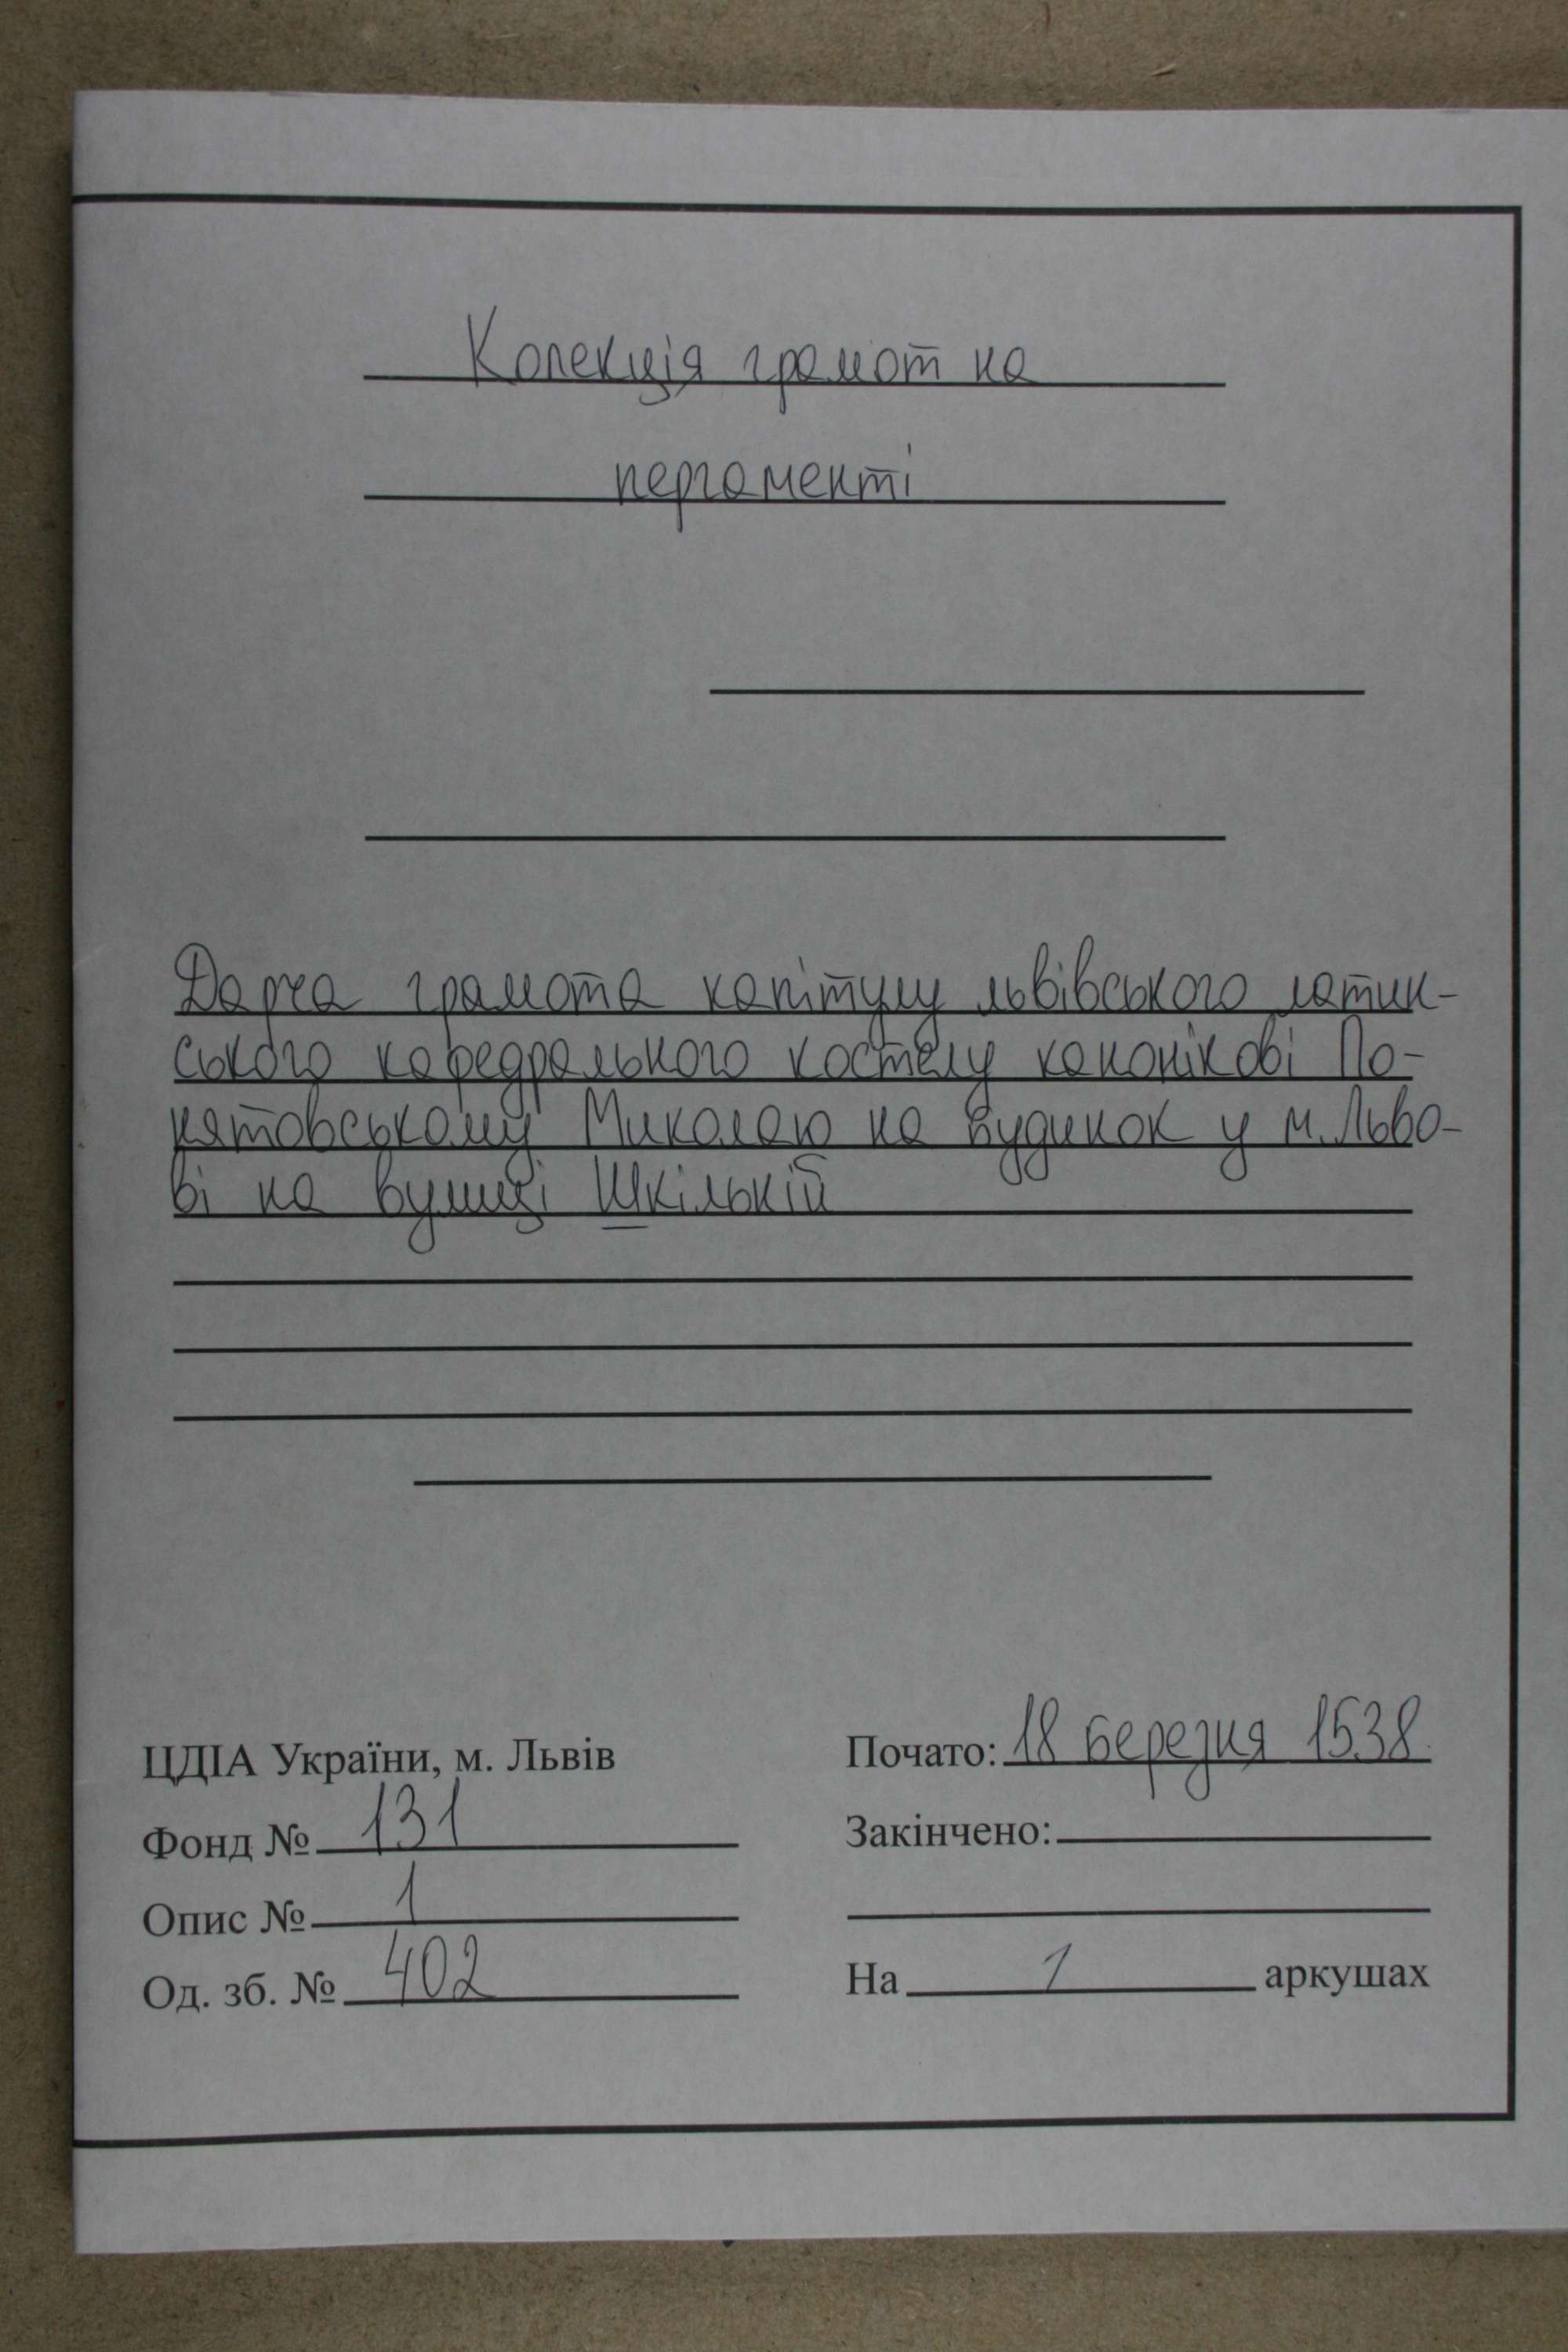 Колекція грамот на
пергаменті
Дарча грамота капітулу львівського латин-
ського кафедрального костелу канонікові По-
нятовському Миколаю на будинок у м. Льво-
ві на вулиці Шкільній
ЦДІА України, м. Львів
Фонд № 131
Опис № 1
Од. зб. № 402
Почато: 18 березня 1538
Закінчено:
На 1 аркушах